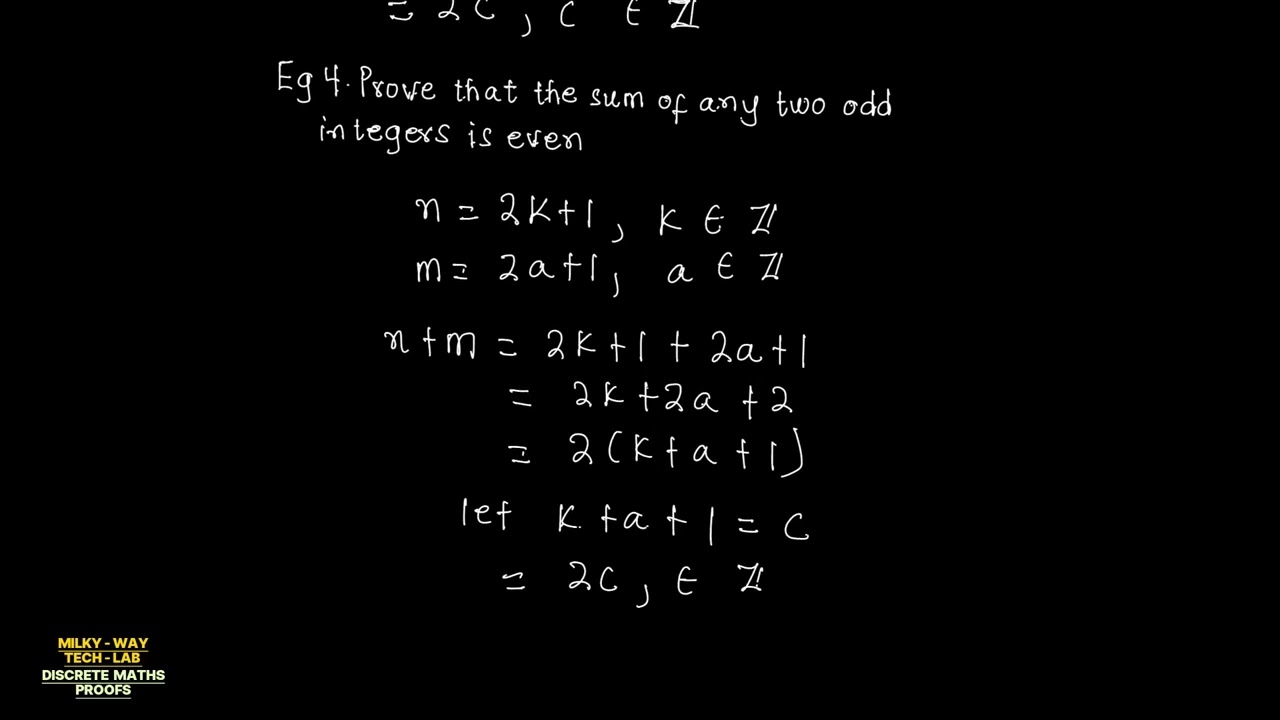 = 2C, C ∈ ℤ
Eg 4. Prove that the sum of any two odd
integers is even
n = 2k+1, k ∈ ℤ
m = 2a+1, a ∈ ℤ
n+m = 2k+1 + 2a+1
= 2k+2a+2
= 2(k+a+1)
let k+a+1 = c
= 2c, ∈ ℤ
MILKY - WAY
TECH - LAB
DISCRETE MATHS
PROOFS